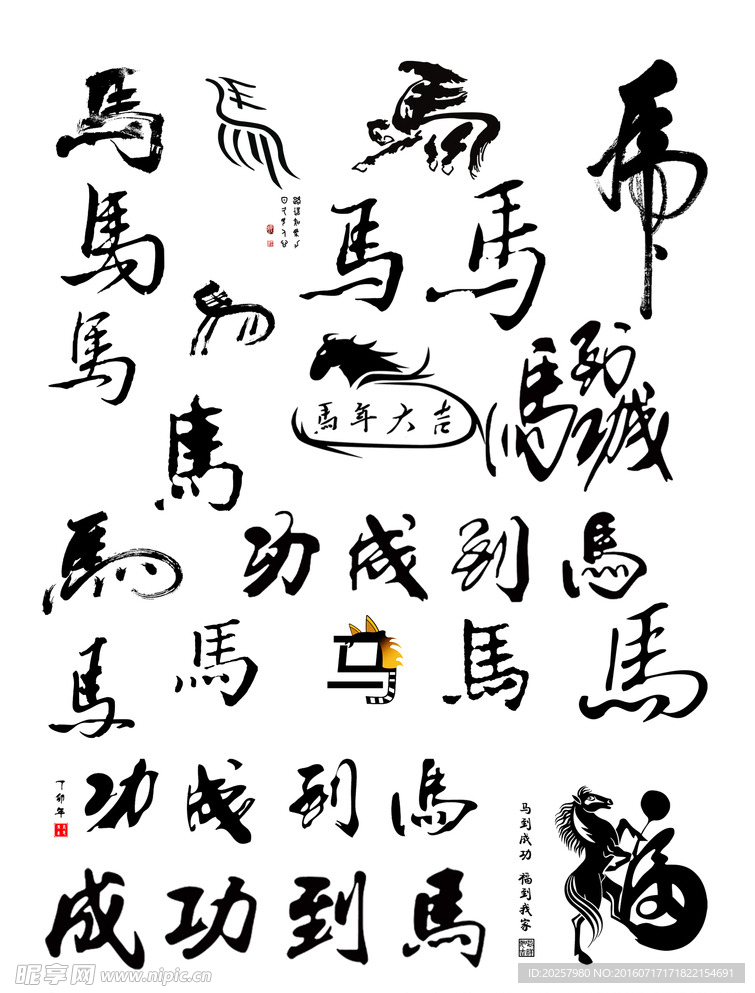 馬 馬 馬 馬
馬 馬 馬
馬
馬年大吉
馬到功成
馬
馬 功成到馬
馬 馬 马 馬 馬
丁卯年
功成到馬
成功到馬
马到成功 福到我家
福
昵享网 www.nipic.cn
ID:20257980 NO:20160717171822154691